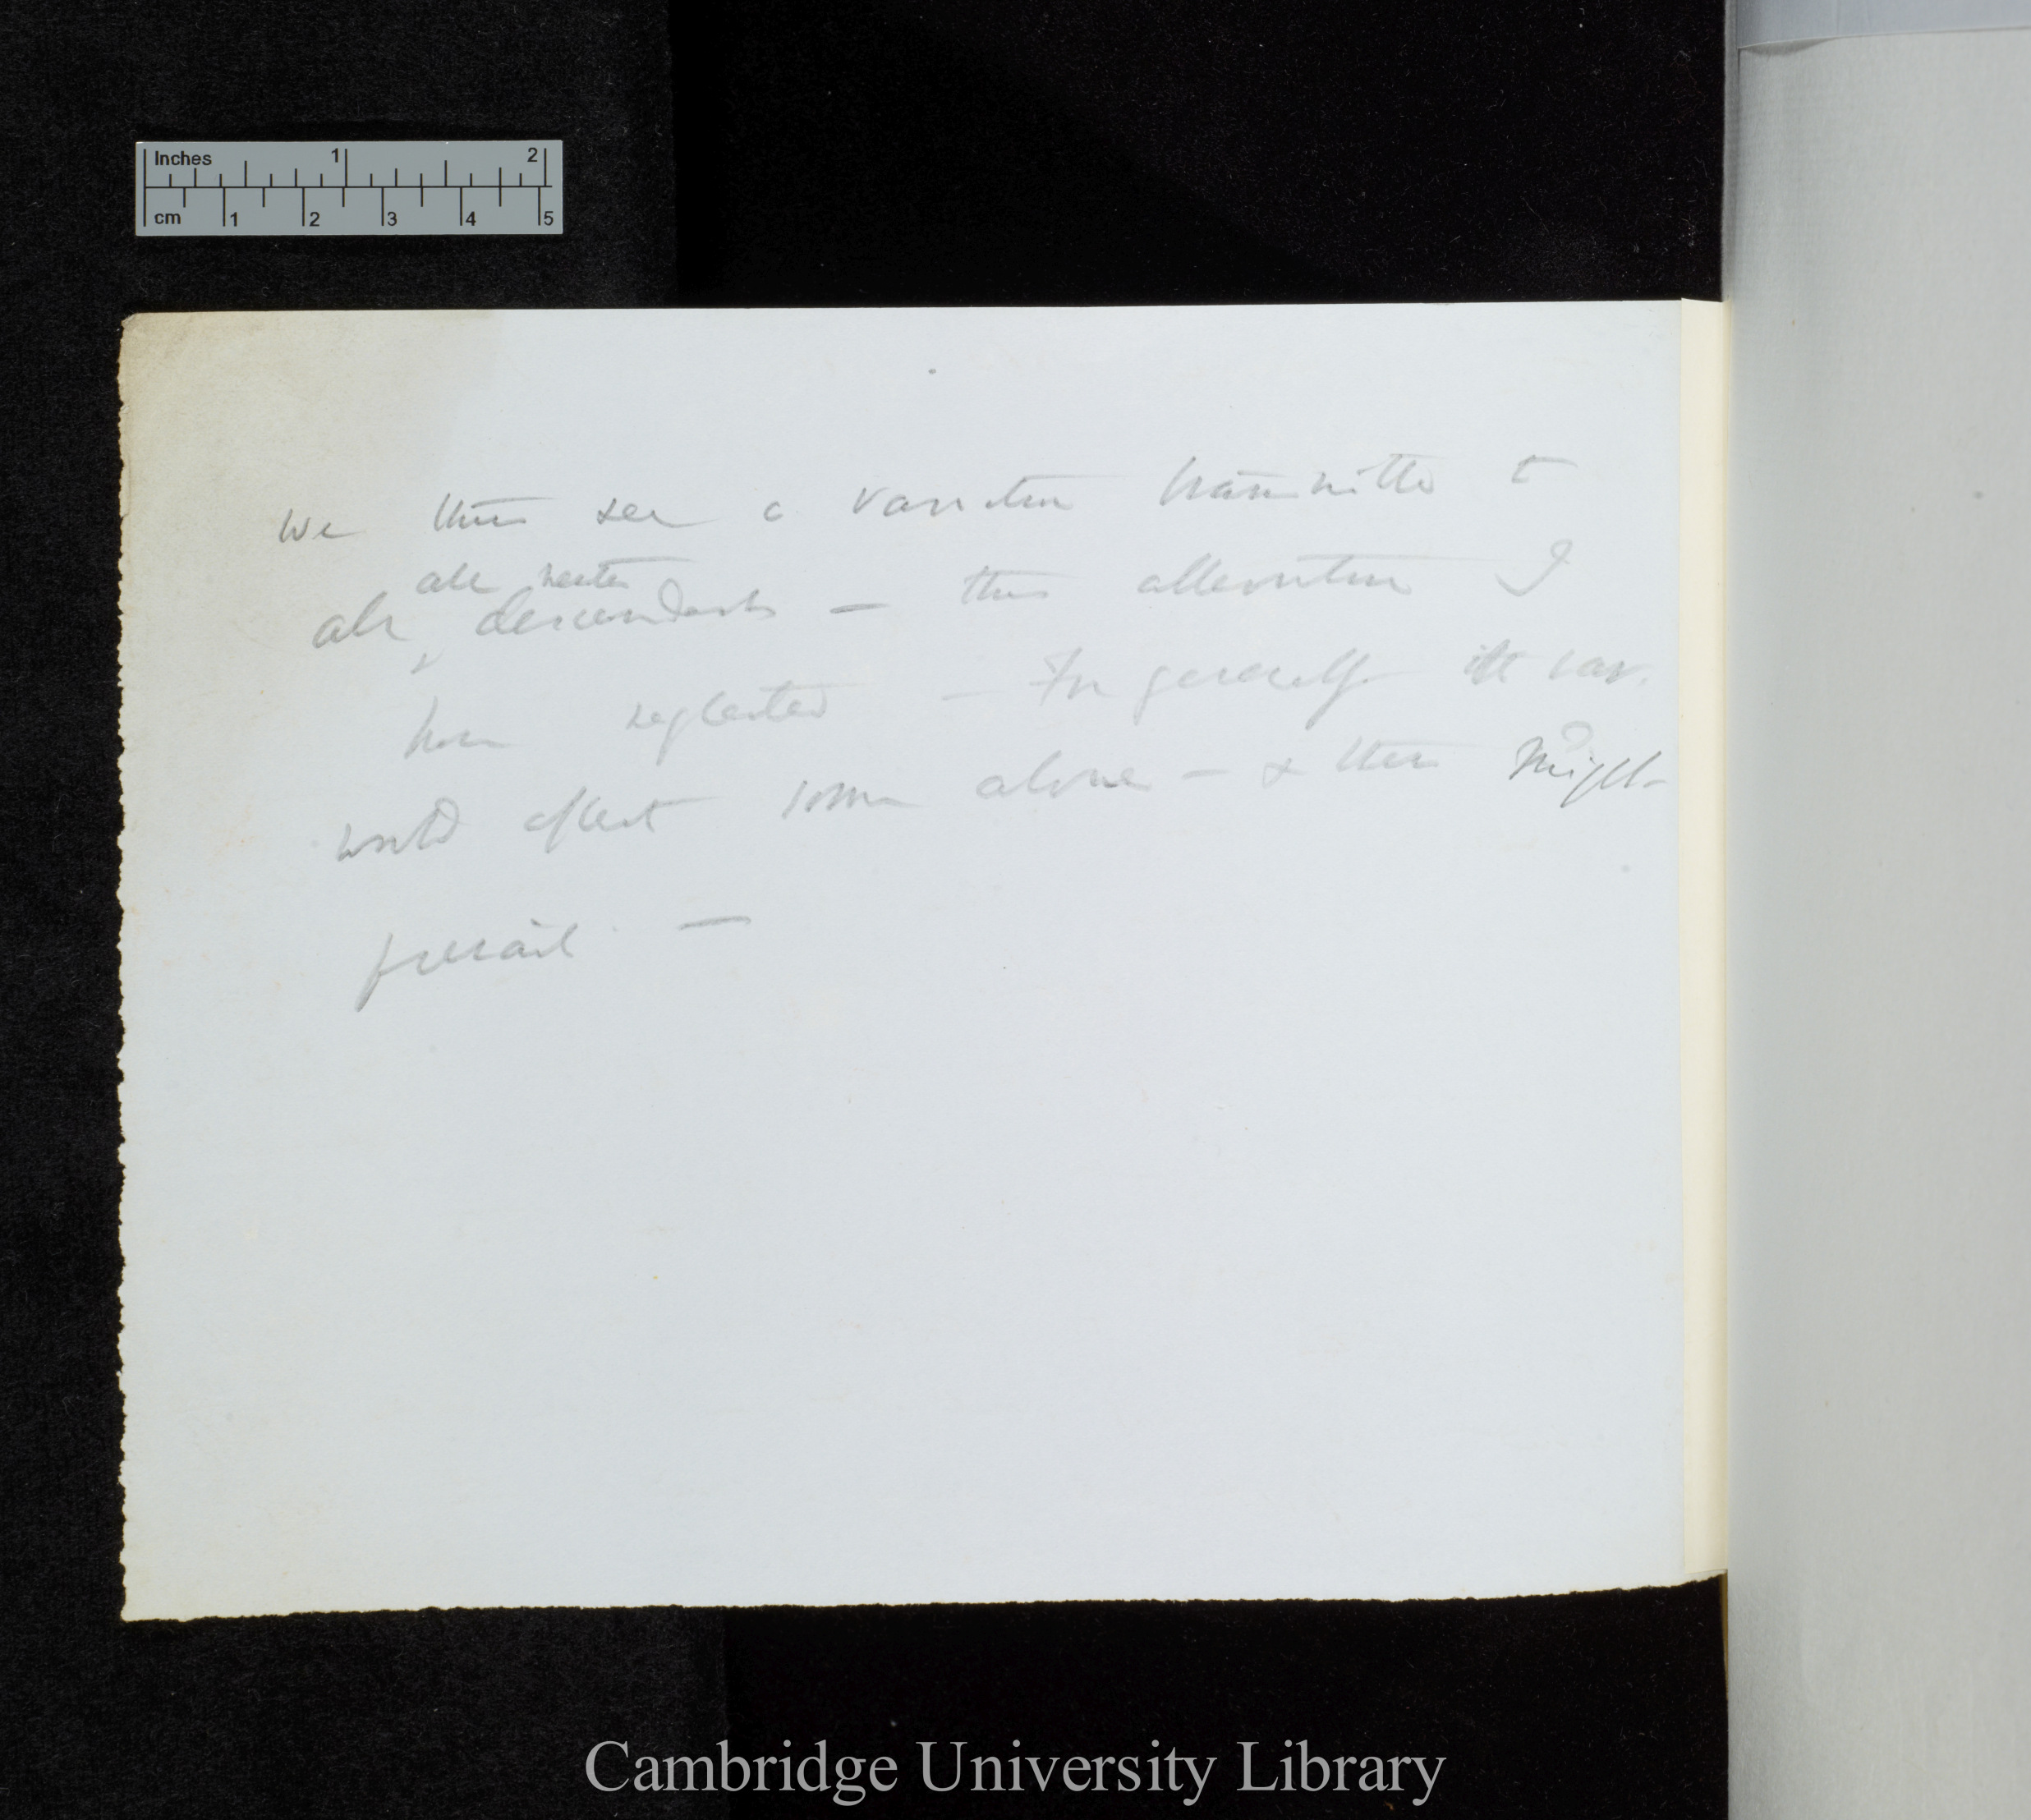 Inches 1 2
cm 1 2 3 4 5
We thus see a variation transmitted to
all neuter
all descendants — this alteration I
have neglected — For generally the var.
would affect some alone — & these might
prevail —
Cambridge University Library